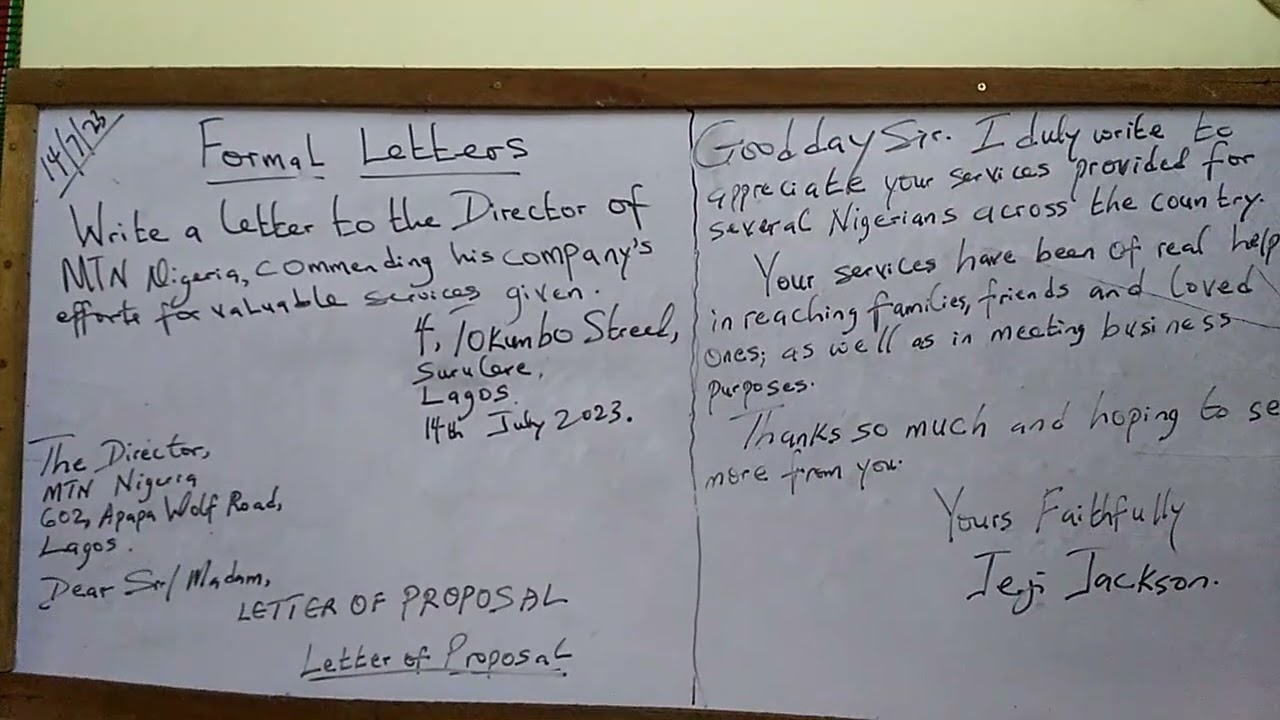 14/7/23
Formal Letters
Write a letter to the Director of
MTN Nigeria, commending his company's
efforts for valuable services given.
4, Tokunbo Street,
Surulere,
Lagos.
14th July 2023.
The Director,
MTN Nigeria
602, Apapa Wolf Road,
Lagos.
Dear Sir/Madam,
LETTER OF PROPOSAL
Letter of Proposal
Good day Sir. I duly write to
appreciate your services provided for
several Nigerians across the country.
Your services have been of real help
in reaching families, friends and loved
ones; as well as in meeting business
purposes.
Thanks so much and hoping to se
more from you.
Yours Faithfully
Jeji Jackson.